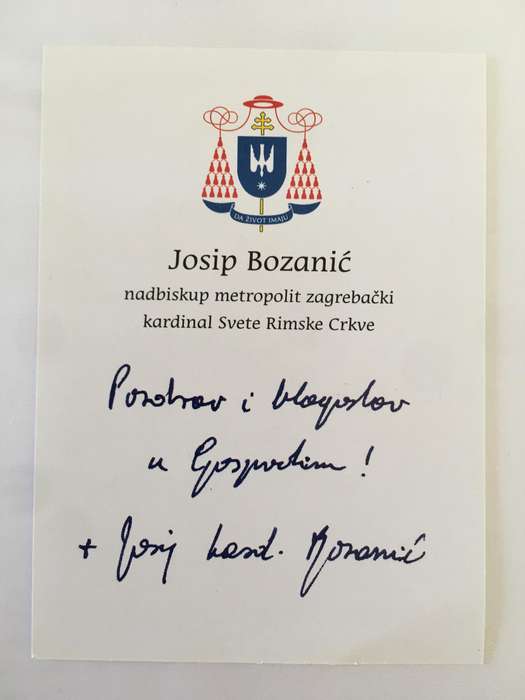 DA ŽIVOT IMAJU
Josip Bozanić
nadbiskup metropolit zagrebački
kardinal Svete Rimske Crkve
Pozdrav i blagoslov
u Gospodinu!
+ Josip kard. Bozanić